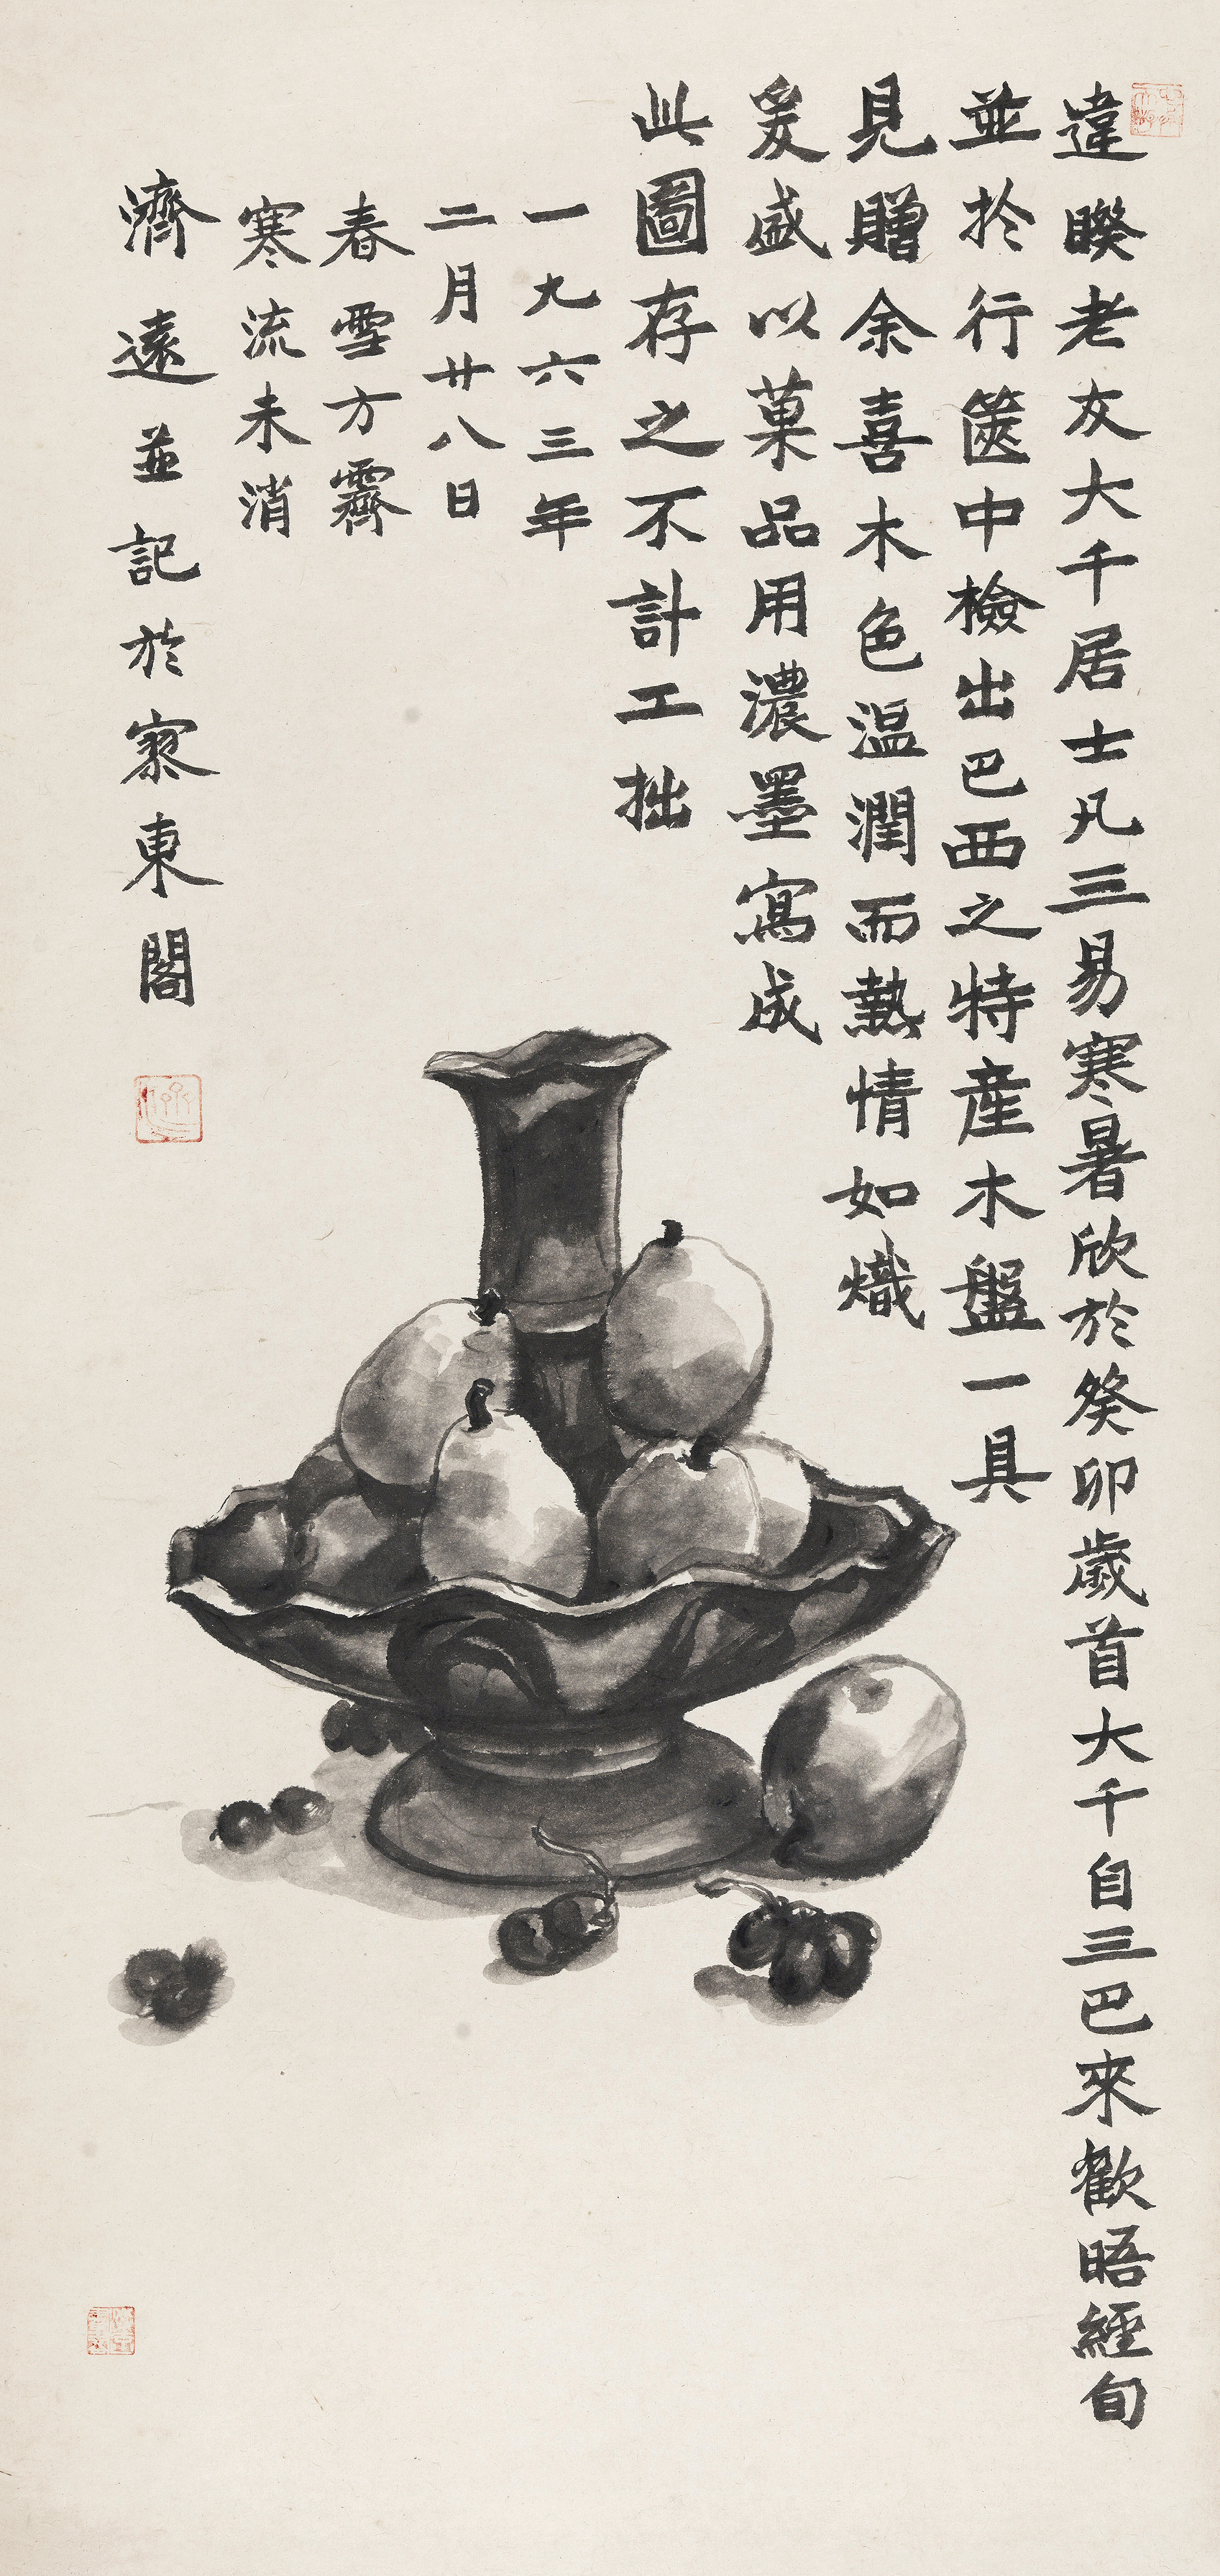 違睽老友大千居士凡三易寒暑欣於癸卯歲首大千自三巴來歡晤經旬
並於行篋中檢出巴西之特產木盤一具
見贈余喜木色溫潤而熱情如熾
爰盛以菓品用濃墨寫成
此圖存之不計工拙
一九六三年
二月廿八日
春雪方霽
寒流未消
濟遠並記於寥東閣